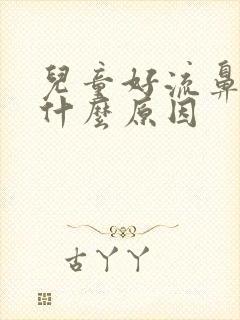 兒童好流鼻
什麼原因
古丫丫